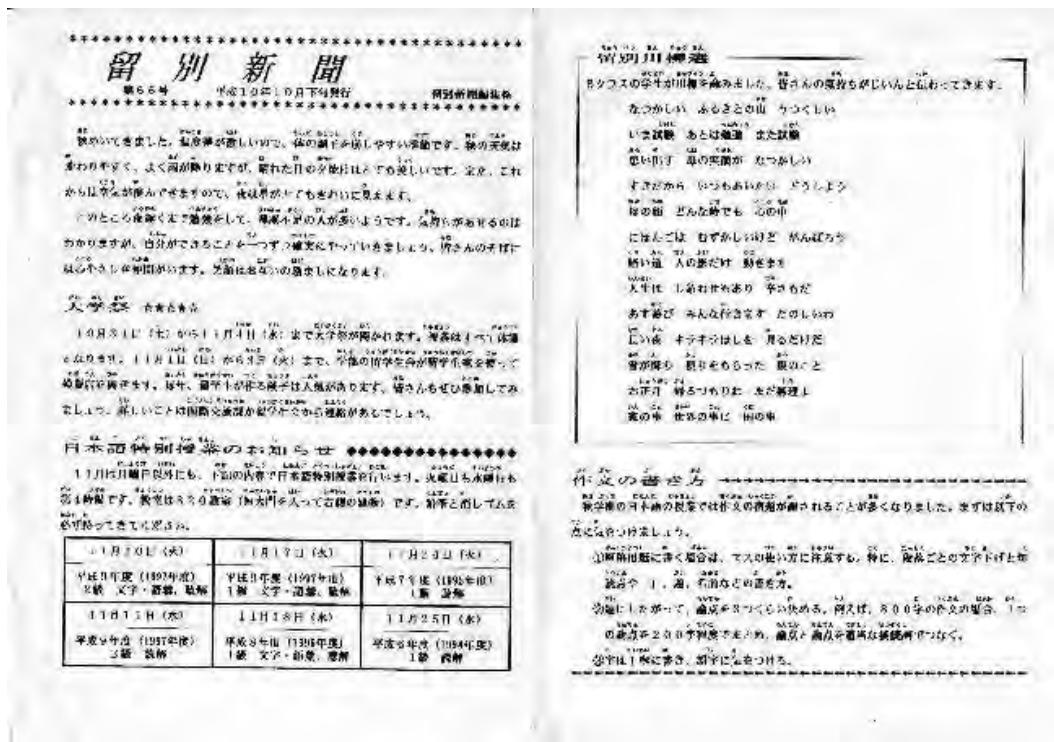 留別新聞
第66号 平成10年10月下旬発行 留別新聞編集係
秋めいてきました。温度差が激しいので、体の調子を崩しやすい季節です。秋の天気は
変わりやすく、よく雨が降りますが、晴れた日の夕焼けはとても美しいです。また、これ
からは空気が澄んできますので、夜景がとてもきれいに見えます。
このところ夜遅くまで勉強をして、睡眠不足の人が多いようです。気持ちがあせるのは
わかりますが、自分ができることを一つずつ確実にやっていきましょう。皆さんのそばに
は心やさしい仲間がいます。笑顔はお互いの励ましになります。
大学祭 ☆☆☆☆☆
10月31日(土)から11月4日(水)まで大学祭が開かれます。授業はすべて休講
となります。11月1日(日)から3日(火)まで、学部の留学生会が留学生を使って
模擬店を開きます。毎年、留学生が作る餃子は人気があります。皆さんもぜひ参加してみ
ましょう。詳しいことは国際交流部か留学生会から連絡があるでしょう。
日本語特別授業のお知らせ ◆◆◆◆◆◆◆◆◆◆◆◆◆◆
11月は月曜日以外にも、下記の内容で日本語特別授業を行います。火曜日も水曜日も
第4時限です。教室は820教室です。鉛筆と消しゴムを
必ず持ってきてください。
11月10日(火) 11月17日(火) 11月24日(火)
平成9年度(1997年度) 平成9年度(1997年度) 平成7年度(1995年度)
2級 文字・語彙、聴解 1級 文字・語彙、聴解 1級 読解
11月11日(水) 11月18日(水) 11月25日(水)
平成9年度(1997年度) 平成8年度(1996年度) 平成6年度(1994年度)
2級 読解 1級 文字・語彙、聴解 1級 読解
留別川柳選
Bクラスの学生が川柳を詠みました。皆さんの気持ちがじいんと伝わってきます。
なつかしい ふるさとの山 うつくしい
いま試験 あとは勉強 また試験
思い出す 母の笑顔が なつかしい
すきだから いつもあいたい どうしよう
母の顔 どんな時でも 心の中
にほんごは むずかしいけど がんばろう
暗い道 人の影だけ 動きます
人生は しあわせもあり 辛さもだ
あす遊び みんな行きます たのしいわ
長い夜 キラキラほしを 見るだけだ
雪が降る
お正月 帰るつもりは まだ無理よ
家の事 世界の事に 国の事
作文の書き方
秋学期の日本語の授業では作文の宿題が課されることが多くなりました。まずは以下の
点に気をつけましょう。
①原稿用紙に書く場合は、マスの使い方に注意する。特に、段落ごとの文字下げと句
読点や「」、題、名前などの書き方。
②題にしたがって、論点を3つくらい決める。例えば、800字の作文の場合、1つ
の論点を200字程度でまとめ、論点と論点を適当な接続詞でつなぐ。
③字は丁寧に書き、誤字に気をつける。